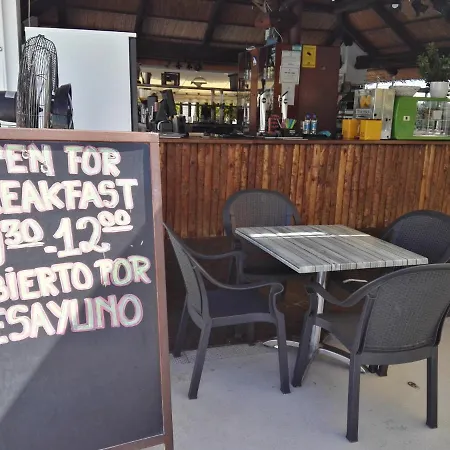 PEN FOR
REAKFAST
9.30-12.00
BIERTO POR
ESAYUNO